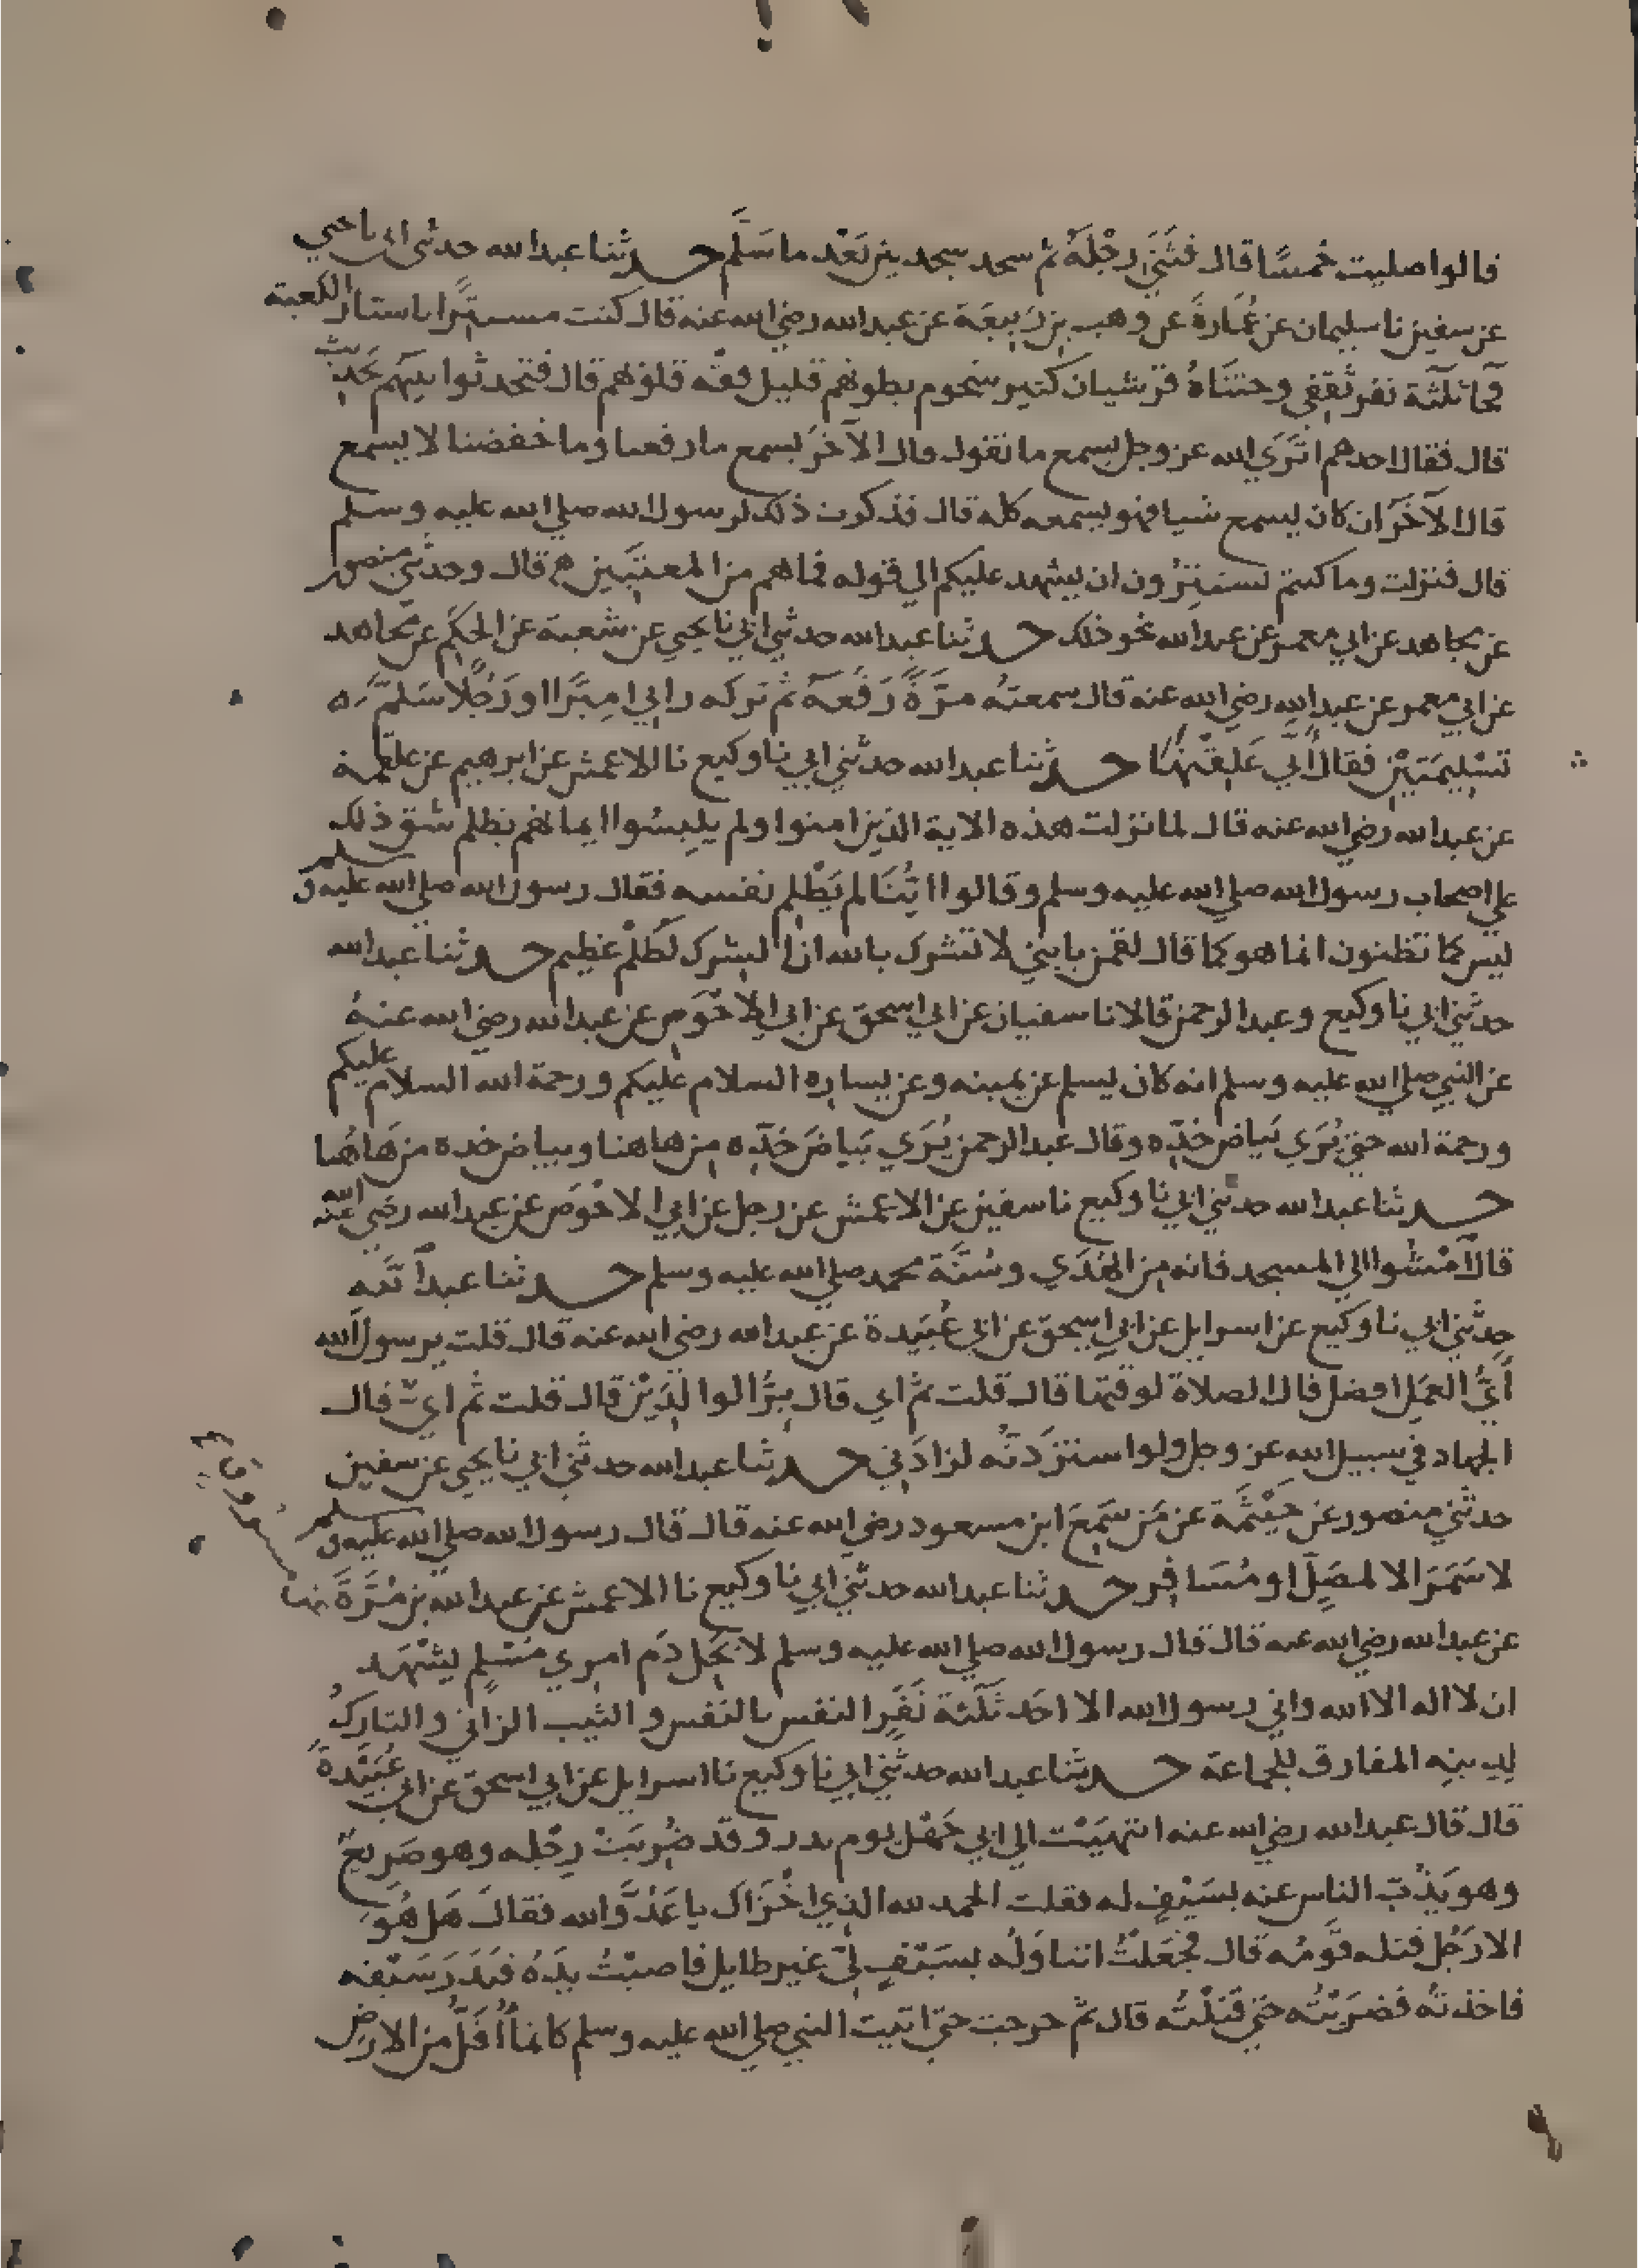 قالوا صليت خمسًا قال فثَنَى رِجْلَهُ ثم سجد سجدتين بَعْد ما سَلَّم حدثنا عبدالله حدثني ابي نا يحيي
عن سفين نا سليمان عن عُمَارةً عن وهب بن رَبيعَة عن عبدالله رضي الله عنه قال كنت مستترًا باستار الكعبة
فجا ثلثة نفر ثقفي وختناهُ قرشيان كثير شحوم بطونهم قليل فقه قلوبهم قال فتحدثوا بينهم بحديث
قال فقال احدهم اتُرَي الله عز وجل يسمع ما نقول قال الآخر يسمع ما رفعنا وما خفضنا لا يسمع
قال الآخَر ان كان يسمع شيا فهو يسمعه كله قال فذكرت ذلك لرسول الله صلي الله عليه وسلم
قال فنزلت وما كنتم تستترُون ان يشهد عليكم الي قوله فما هم من المعتَبين ه قال وحدثني منصور
عن مجاهد عن ابي معمر عن عبدالله نحو ذلك حدثنا عبدالله حدثني ابي نا يحيي عن شعبة عن الحكَم عن مجاهد
عن ابي معمر عن عبدالله رضي الله عنه قال سمعته مَرَّةً رَفَعَهُ ثم تركه راي اميرًا او رَجُلًا سَلَّم
تَسْلِيمَتَيْن فقال أنَّي عَلِقَهْا حدثنا عبدالله حدثني ابي نا وكيع نا الاعمش عن ابرهيم عن علقمة
عن عبدالله رضي الله عنه قال لما نزلت هذه الاية الذين امنوا ولم يلبِسُوا ايمانهم بظلم شق ذلك
علي اصحاب رسول الله صلي الله عليه وسلم وقالوا ايُّنَا لم يَظْلِم نفسه فقال رسول الله صلي الله عليه وسلم
ليس كما تظنون انما هو كما قال لقمن يا بني لا تشرك بالله ان الشرك لظُلْم عَظِيم حدثنا عبدالله
حدثني ابي نا وكيع وعبدالرحمن قالا نا سفيان عن ابي اسحق عن ابي الاحْوَص عن عبدالله رضي الله عنهُ
عن النبي صلي الله عليه وسلم انه كان يسلم عن يمينه وعن يساره السلام عليكم ورحمة الله السلام عليكم
ورحمة الله حتى يُرَي بَياض خَدِّه وقال عبدالرحمن يُرَي بَيَاضَ خَدِّه مِن هاهنا وبياض خده من هَاهُنا
حدثنا عبدالله حدثني ابي نا وكيع نا سفين عن الاعمش عن رجل عن ابي الاحْوَص عن عبدالله رضي الله عنه
قال آمْشُوا الي المسجد فانه مِن الهَدْي وسُنَّة محمد صلي الله عليه وسلم حدثنا عبدالله
حدثني ابي نا وكيع عن اسرايل عن ابي اسحق عن ابي عُبَيدة عن عبدالله رضي الله عنه قال قلت يرسول الله
أيُّ العَمَل افضل قال الصلاة لوقتها قال قلت ثم اي قال بِرُّ الوالِدَيْن قال قلت ثم ايّ قال
الجهاد في سبيل الله عز وجل ولو استَزَدتُه لزادَني حدثنا عبدالله حدثني ابي نا يحيي عن سفين
حدثني منصور عن خَيْثَمَة عن مَن سَمِعَ ابن مسعود رضي الله عنه قال قال رسول الله صلي الله عليه وسلم
لا سَمَرَ الا لمصَلٍّ او مُسَافِر حدثنا عبدالله حدثني ابي نا وكيع نا الاعمش عن عبدالله بن مُرَّةَ
عن مسروق
عن عبدالله رضي الله عنه قال قال رسول الله صلي الله عليه وسلم لا يَحِل دَم امري مُسْلِمٍ يشْهَد
ان لا اله الا الله واني رسول الله الا احَد ثَلَثة نَفَرٍ النفس بالنفس والثيب الزاني والتاركُ
لِدِينِه المفارق للجماعة حدثنا عبدالله حدثني ابي نا وكيع نا اسرايل عن ابي اسحق عن ابي عُبَيْدةَ
قال قال عبدالله رضي الله عنه انتهَيْت الي ابي جَهْل يوم بدر وقد ضُرِبَتْ رِجْله وهو صَرِيعٌ
وهو يَذُبّ الناس عنه بسَيْفٍ له فقلت الحمد لله الذي اخْزَاكَ يا عَدُوَّ الله فقالَ هَل هُوَ
الا رَجُل قتله قَومُه قال فجَعَلْتُ اتناوَلُه بسَيْفٍ لِي غير طايل فاصبْتُ يدَهُ فنَدَر سَيْفه
فاخذتُه فضرَبتُه حتي قتَلْتُه قال ثم خرجت حتّي اتيت النبي صلي الله عليه وسلم كانما أُقَلُّ من الارض